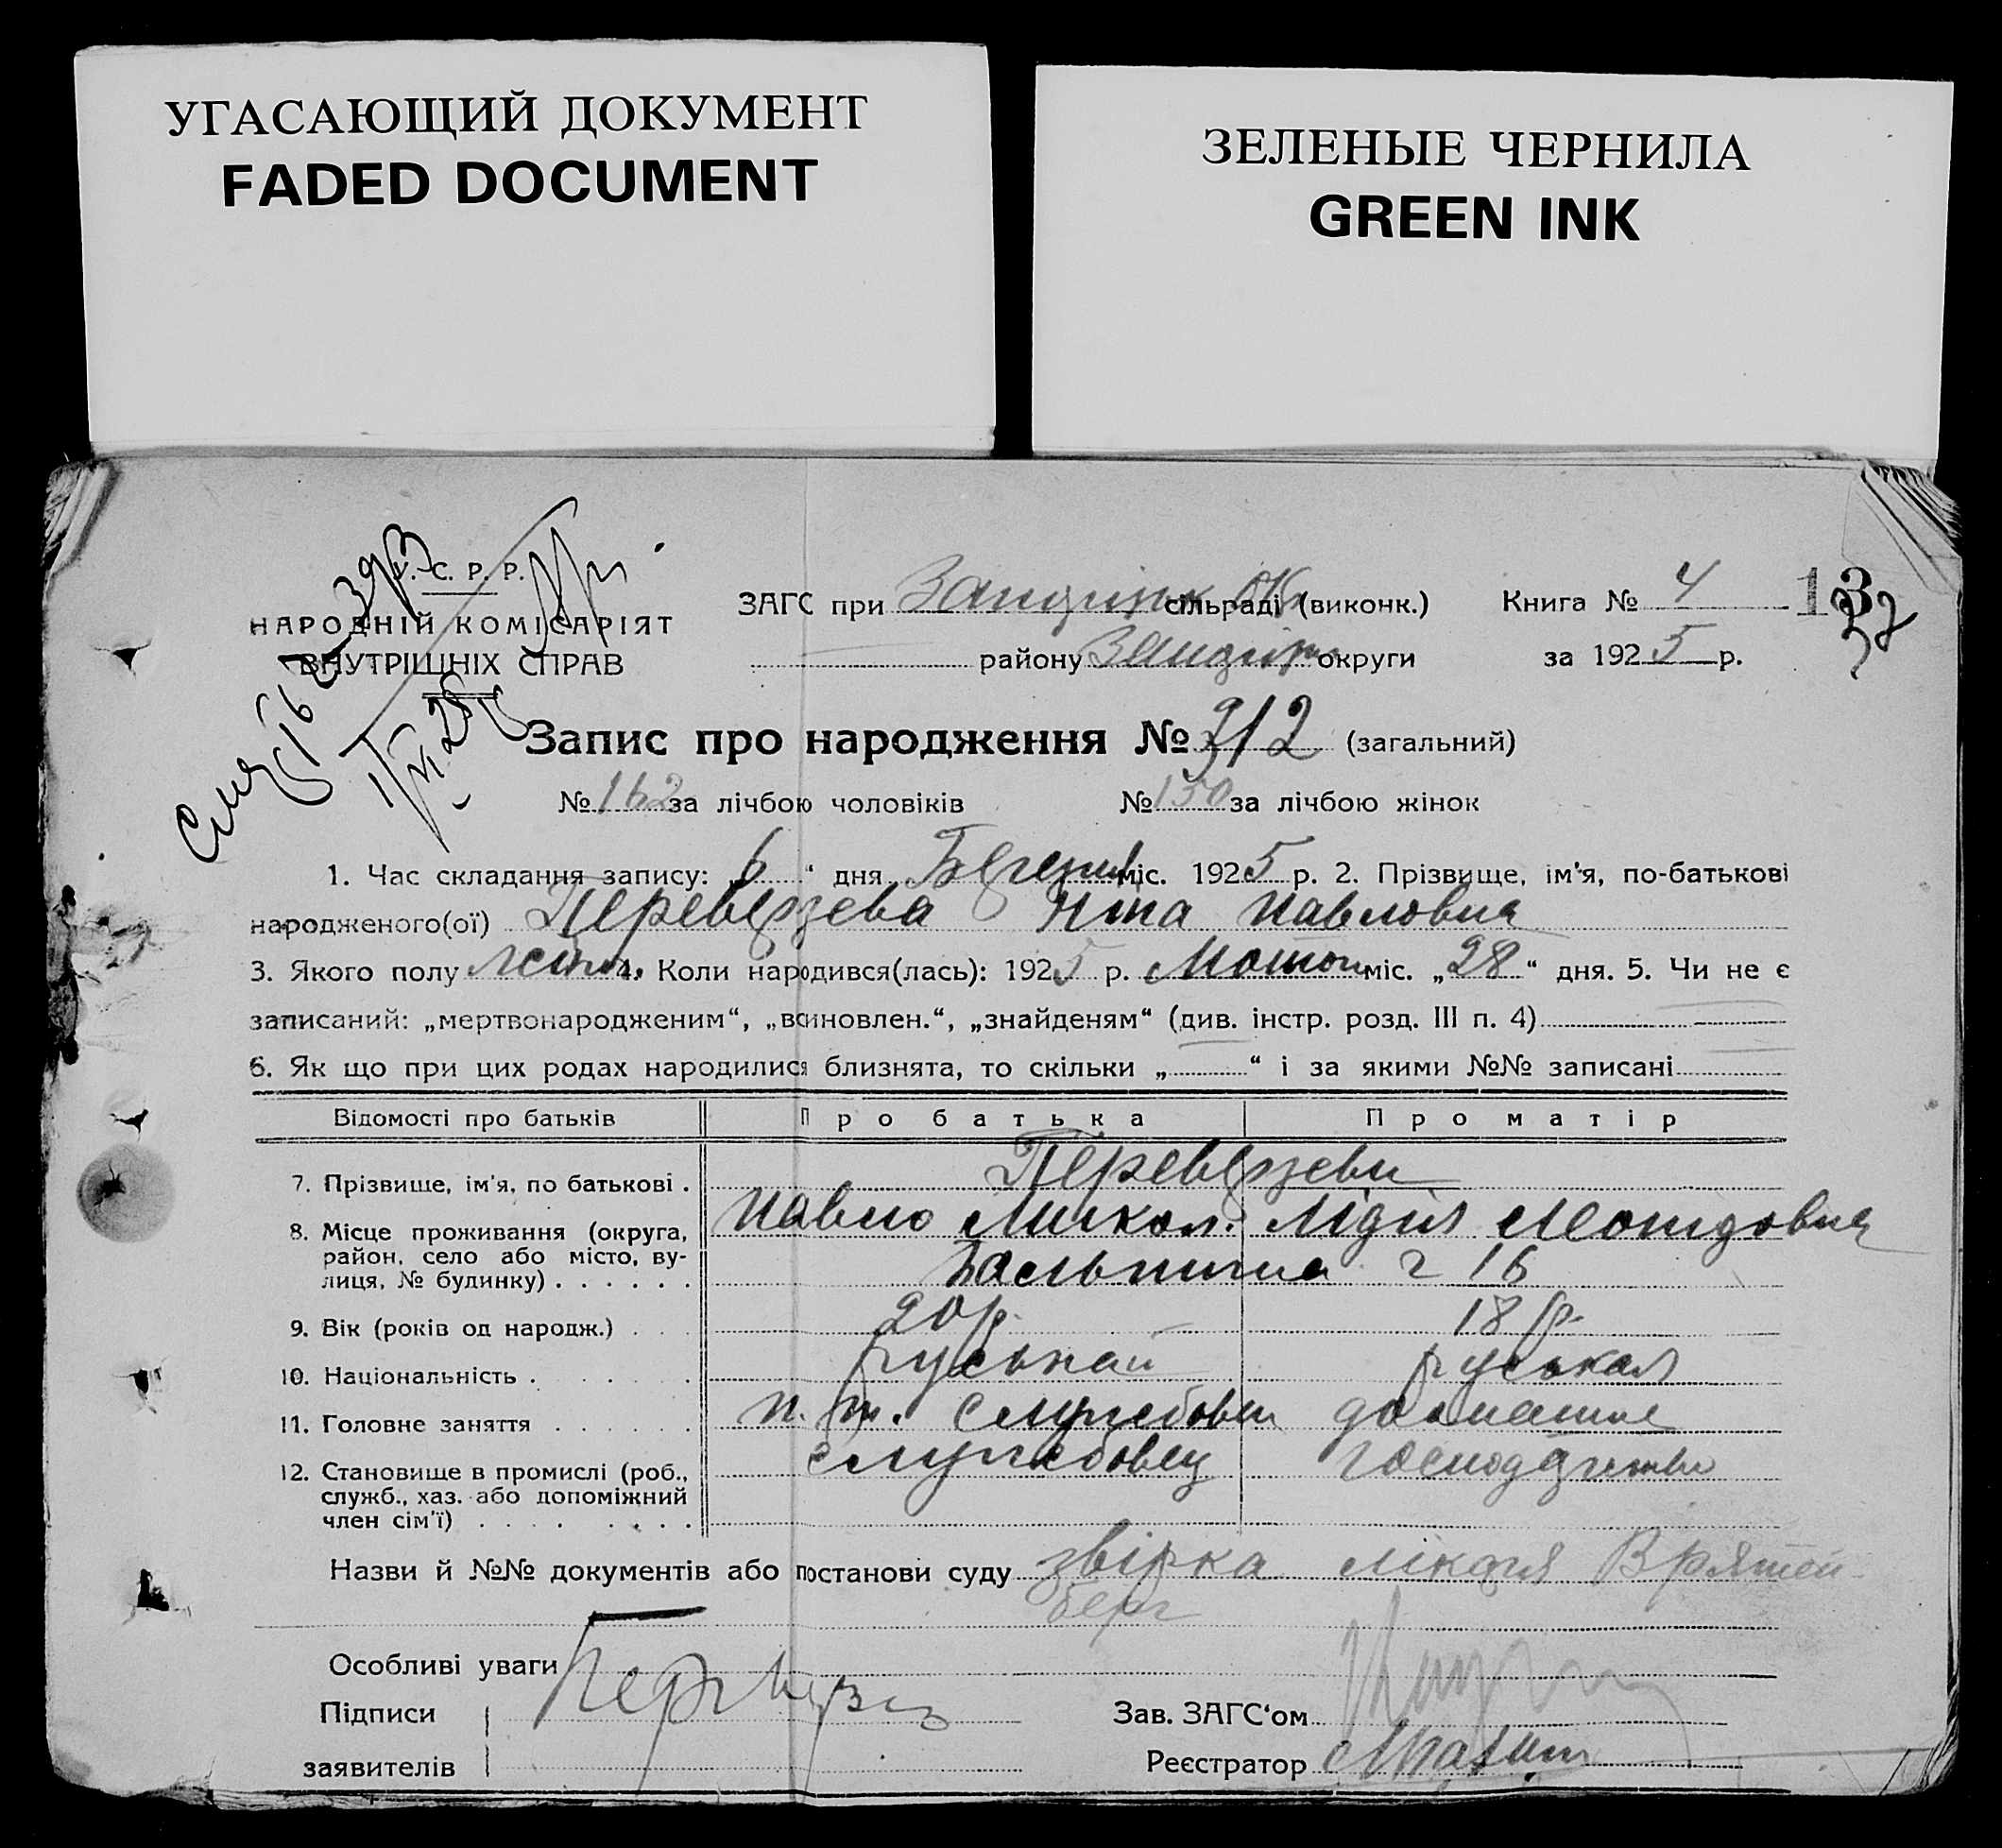 УГАСАЮЩИЙ ДОКУМЕНТ
FADED DOCUMENT
ЗЕЛЕНЫЕ ЧЕРНИЛА
GREEN INK
У. С. Р. Р.
НАРОДНІЙ КОМІСАРІЯТ
ВНУТРІШНІХ СПРАВ
ЗАГС при сільраді (виконк.) Книга № 4 13
району округи за 1925 р.
Запис про народження № 312 (загальний)
№ 162 за лічбою чоловіків № 150 за лічбою жінок
1. Час складання запису: „6“ дня Березня міс. 1925 р. 2. Прізвище, ім'я, по-батькові
народженого(ої) Переверзева Павловна
3. Якого полу 4. Коли народився(лась): 1925 р. міс. „28“ дня. 5. Чи не є
записаний: „мертвонародженим“, „всиновлен.“, „знайденям“ (див. інстр. розд. III п. 4)
6. Як що при цих родах народилися близнята, то скільки „ “ і за якими №№ записані
Відомості про батьків Про батька Про матір
7. Прізвище, ім'я, по батькові . Переверзеви
Павло Микол. Лідія
8. Місце проживання (округа,
район, село або місто, ву-
лиця, № будинку) . . . . . . 16
9. Вік (років од народж.) . . . 20 р. 18 р.
10. Національність . . . . . руський руськая
11. Головне заняття . . . . . . службовец домашнє
12. Становище в промислі (роб., службовец господарство
служб., хаз. або допоміжний
член сім'ї) . . . . . . . .
Назви й №№ документів або постанови суду звірка лікаря
берг
Особливі уваги
Підписи
заявителів
Зав. ЗАГС‘ом
Реєстратор